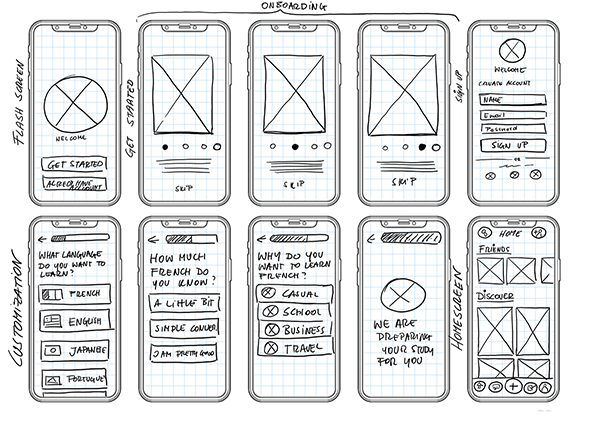 ONBOARDING
FLASH SCREEN
WELCOME
GET STARTED
ALREADY HAVE
ACCOUNT
GET STARTED
SKIP
SKIP
SKIP
SIGN UP
WELCOME
CREATE ACCOUNT
NAME
EMAIL
PASSWORD
SIGN UP
OR
CUSTOMIZATION
WHAT LANGUAGE
DO YOU WANT TO
LEARN?
FRENCH
ENGLISH
JAPANESE
PORTUGUE
HOW MUCH
FRENCH DO
YOU KNOW?
A LITTLE BIT
SIMPLE CONVER
I AM PRETTY GOOD
WHY DO YOU
WANT TO LEARN
FRENCH?
CASUAL
SCHOOL
BUSINESS
TRAVEL
WE ARE
PREPARING
YOUR STUDY
FOR YOU
HOMESCREEN
HOME
FRIENDS
DISCOVER